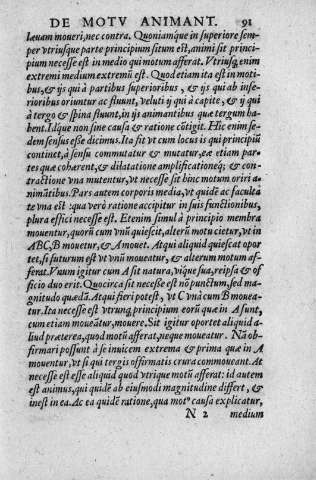 DE MOTV ANIMANT. 91
læuam moueri, nec contra. Quoniamque in superiore sem-
per vtriusque parte principium situm est, animi sit princi-
pium necesse est in medio qui motum afferat. Vtriusq, enim
extremi medium extremū est. Quod etiam ita est in moti-
bus, & ijs qui à partibus superioribus, & ijs qui ab infe-
rioribus oriuntur ac fluunt, veluti y qui à capite, & y qui
à tergo & spina fluunt, in ijs animantibus quæ tergum ha-
bent. Idq́ue non sine causa & ratione cōtigit. Hic enim se-
dem sensus eße dicimus. Ita fit vt cum locus is qui principiū
continet, à sensu commutatur & mutatur, eæ etiam par-
tes quæ cohærent, & dilatatione amplificationeq́; & con-
tractione vna mutentur, vt necesse sit hinc motum oriri a-
nimātibus. Pars autem corporis media, vt quidē ac faculta
te vna est: quavero ratione accipitur in suis functionibus,
plura effici necesse est. Etenim simul à principio membra
mouentur, quorū cum vnū quiescit, alterū motu cietur, vt in
ABC, B mouetur, & A mouet. Atqui aliquid quiescat opor
tet, si futurum est vt vnū moueatur, & alterum motum af-
ferat. Vnum igitur cum A sit natura, vique sua, reipsa & of
ficio duo erit. Quocirca sit necesse est nō punctum, sed ma-
gnitudo quædā. Atqui fieri potest, vt C vnà cum B mouea-
tur. Ita necesse est vtrunq; principium eorū quæ in A sunt,
cum etiam moueātur, mouere. Sit igitur oportet aliquid a-
liud præterea, quod motū afferat, neque moueatur. Nā ob-
firmari possunt à se inuicem extrema & prima quæ in A
mouentur, vt si qui tergis offirmatis crura commoueant. At
necesse est esse aliquid quod vtrique motū afferat: id autem
est animus, qui quidē ab eiusmodi magnitudine differt, &
inest in ea. Ac ea quidē ratione, qua motꝰ causa explicatur,
N 2 medium